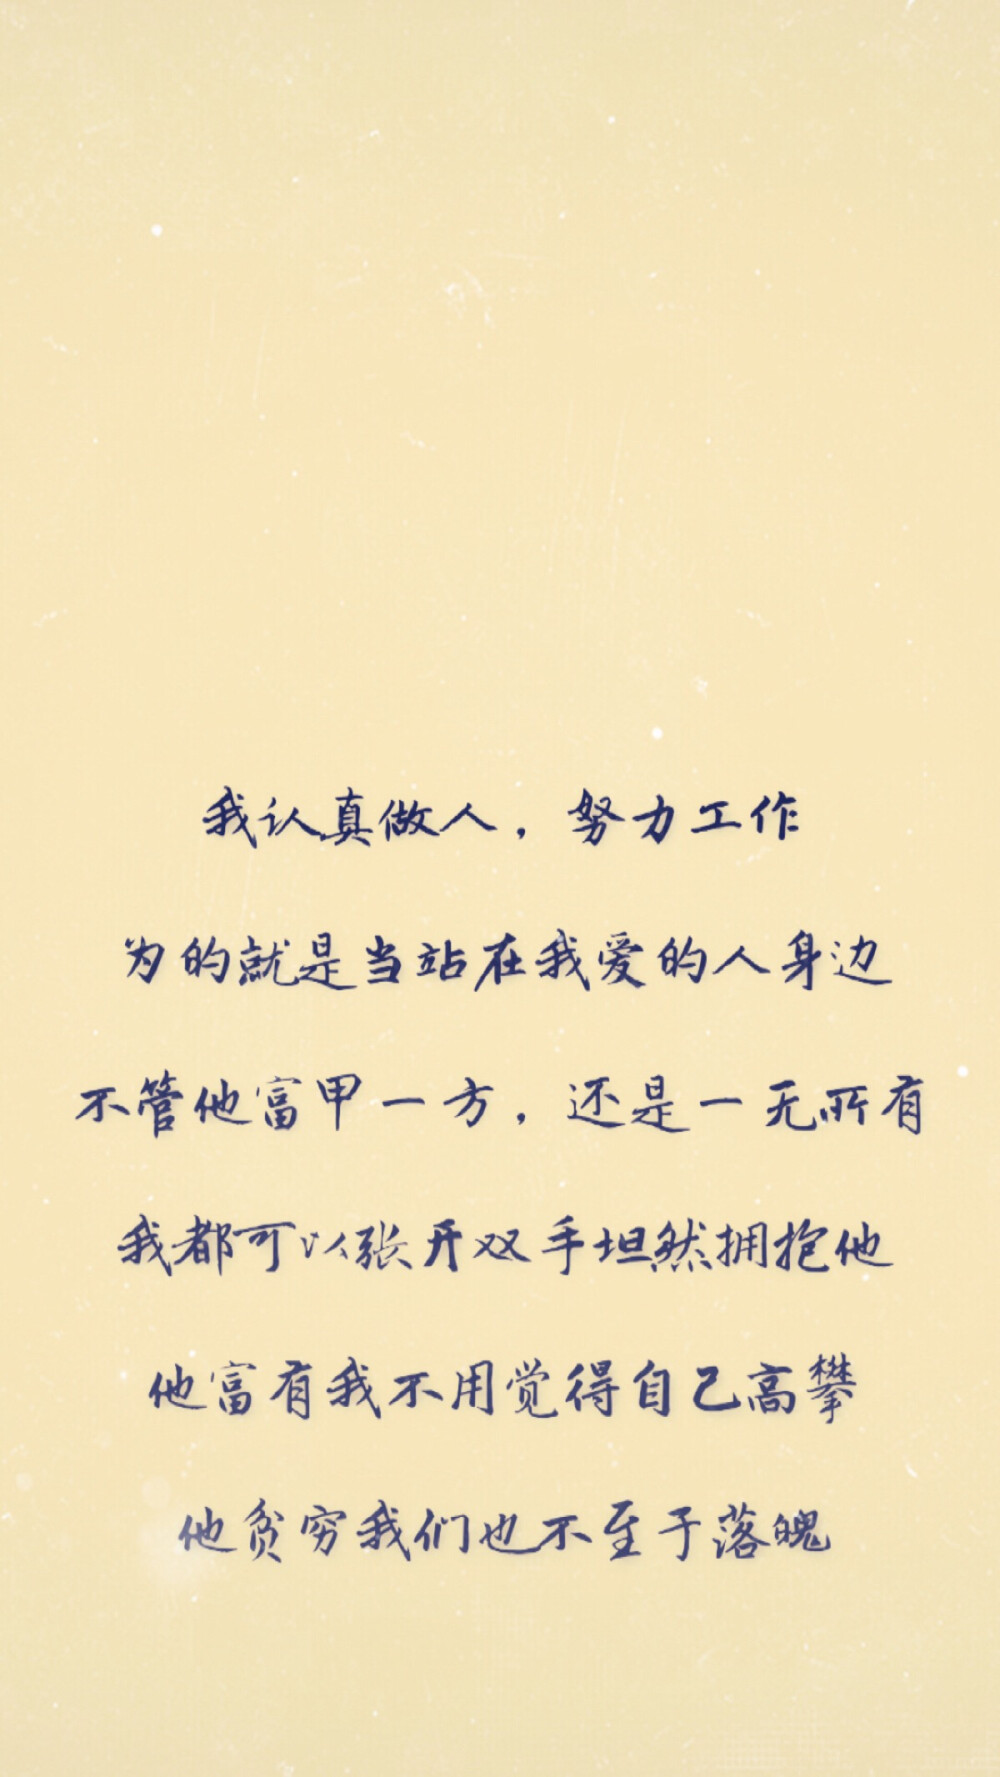 我认真做人，努力工作
为的就是当站在我爱的人身边
不管他富甲一方，还是一无所有
我都可以张开双手坦然拥抱他
他富有我不用觉得自己高攀
他贫穷我们也不至于落魄